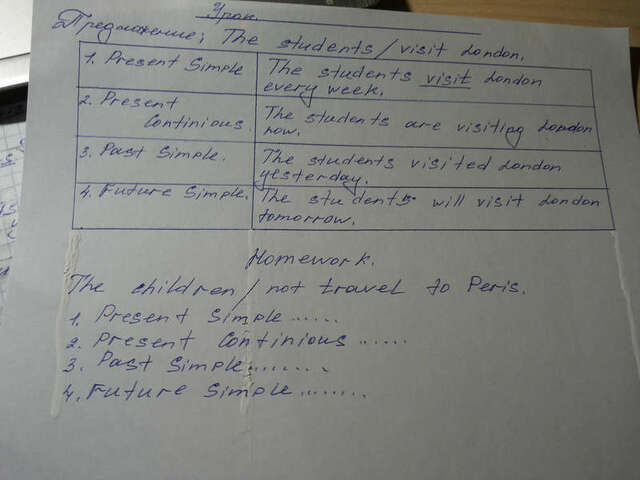 Урок.
Предложение: The students / visit London.
1. Present Simple
The students visit London
every week.
2. Present
Continious.
The students are visiting London
now.
3. Past Simple.
The students visited London
yesterday.
4. Future Simple.
The students will visit London
tomorrow.
Homework.
The children / not travel to Peris.
1. Present Simple ......
2. Present Continious ......
3. Past Simple ........
4. Future Simple .......